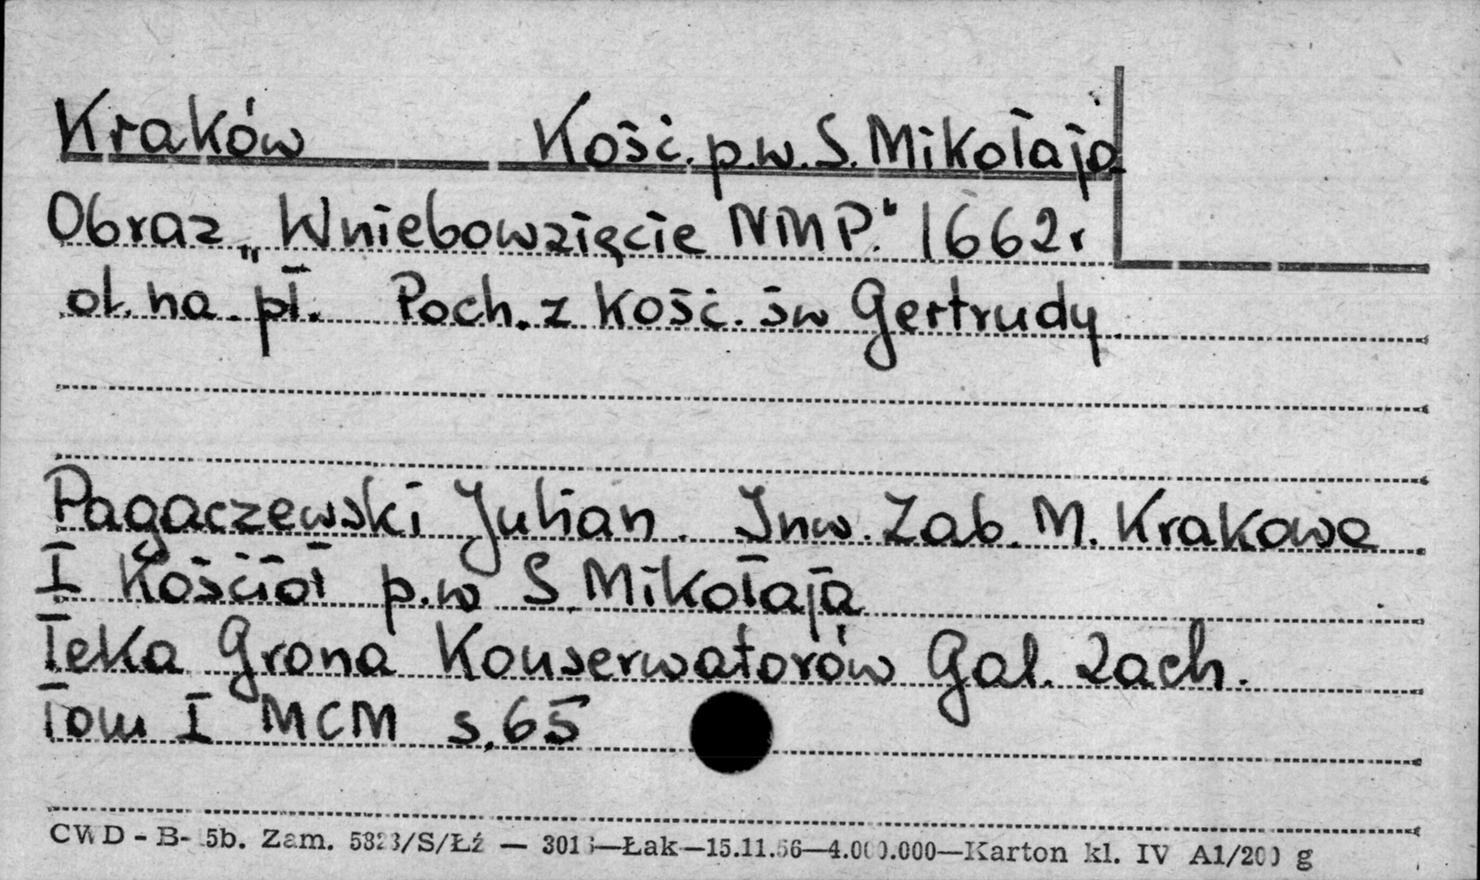 Kraków Kość. p.w. S. Mikołaja
Obraz „Wniebowzięcie NMP." 1662 r
ol. na. pł. Poch. z kość. św Gertrudy
Pagaczewski Julian. Inw. Zab. M. Krakowa
I Kościół p.w S. Mikołaja
Teka Grona Konserwatorów Gal. Zach.
Tom I MCM s. 65
CWD - B- 5b. Zam. 5823/S/Łź — Łak—15.11.56—4.000.000—Karton kl. IV A1/200 g